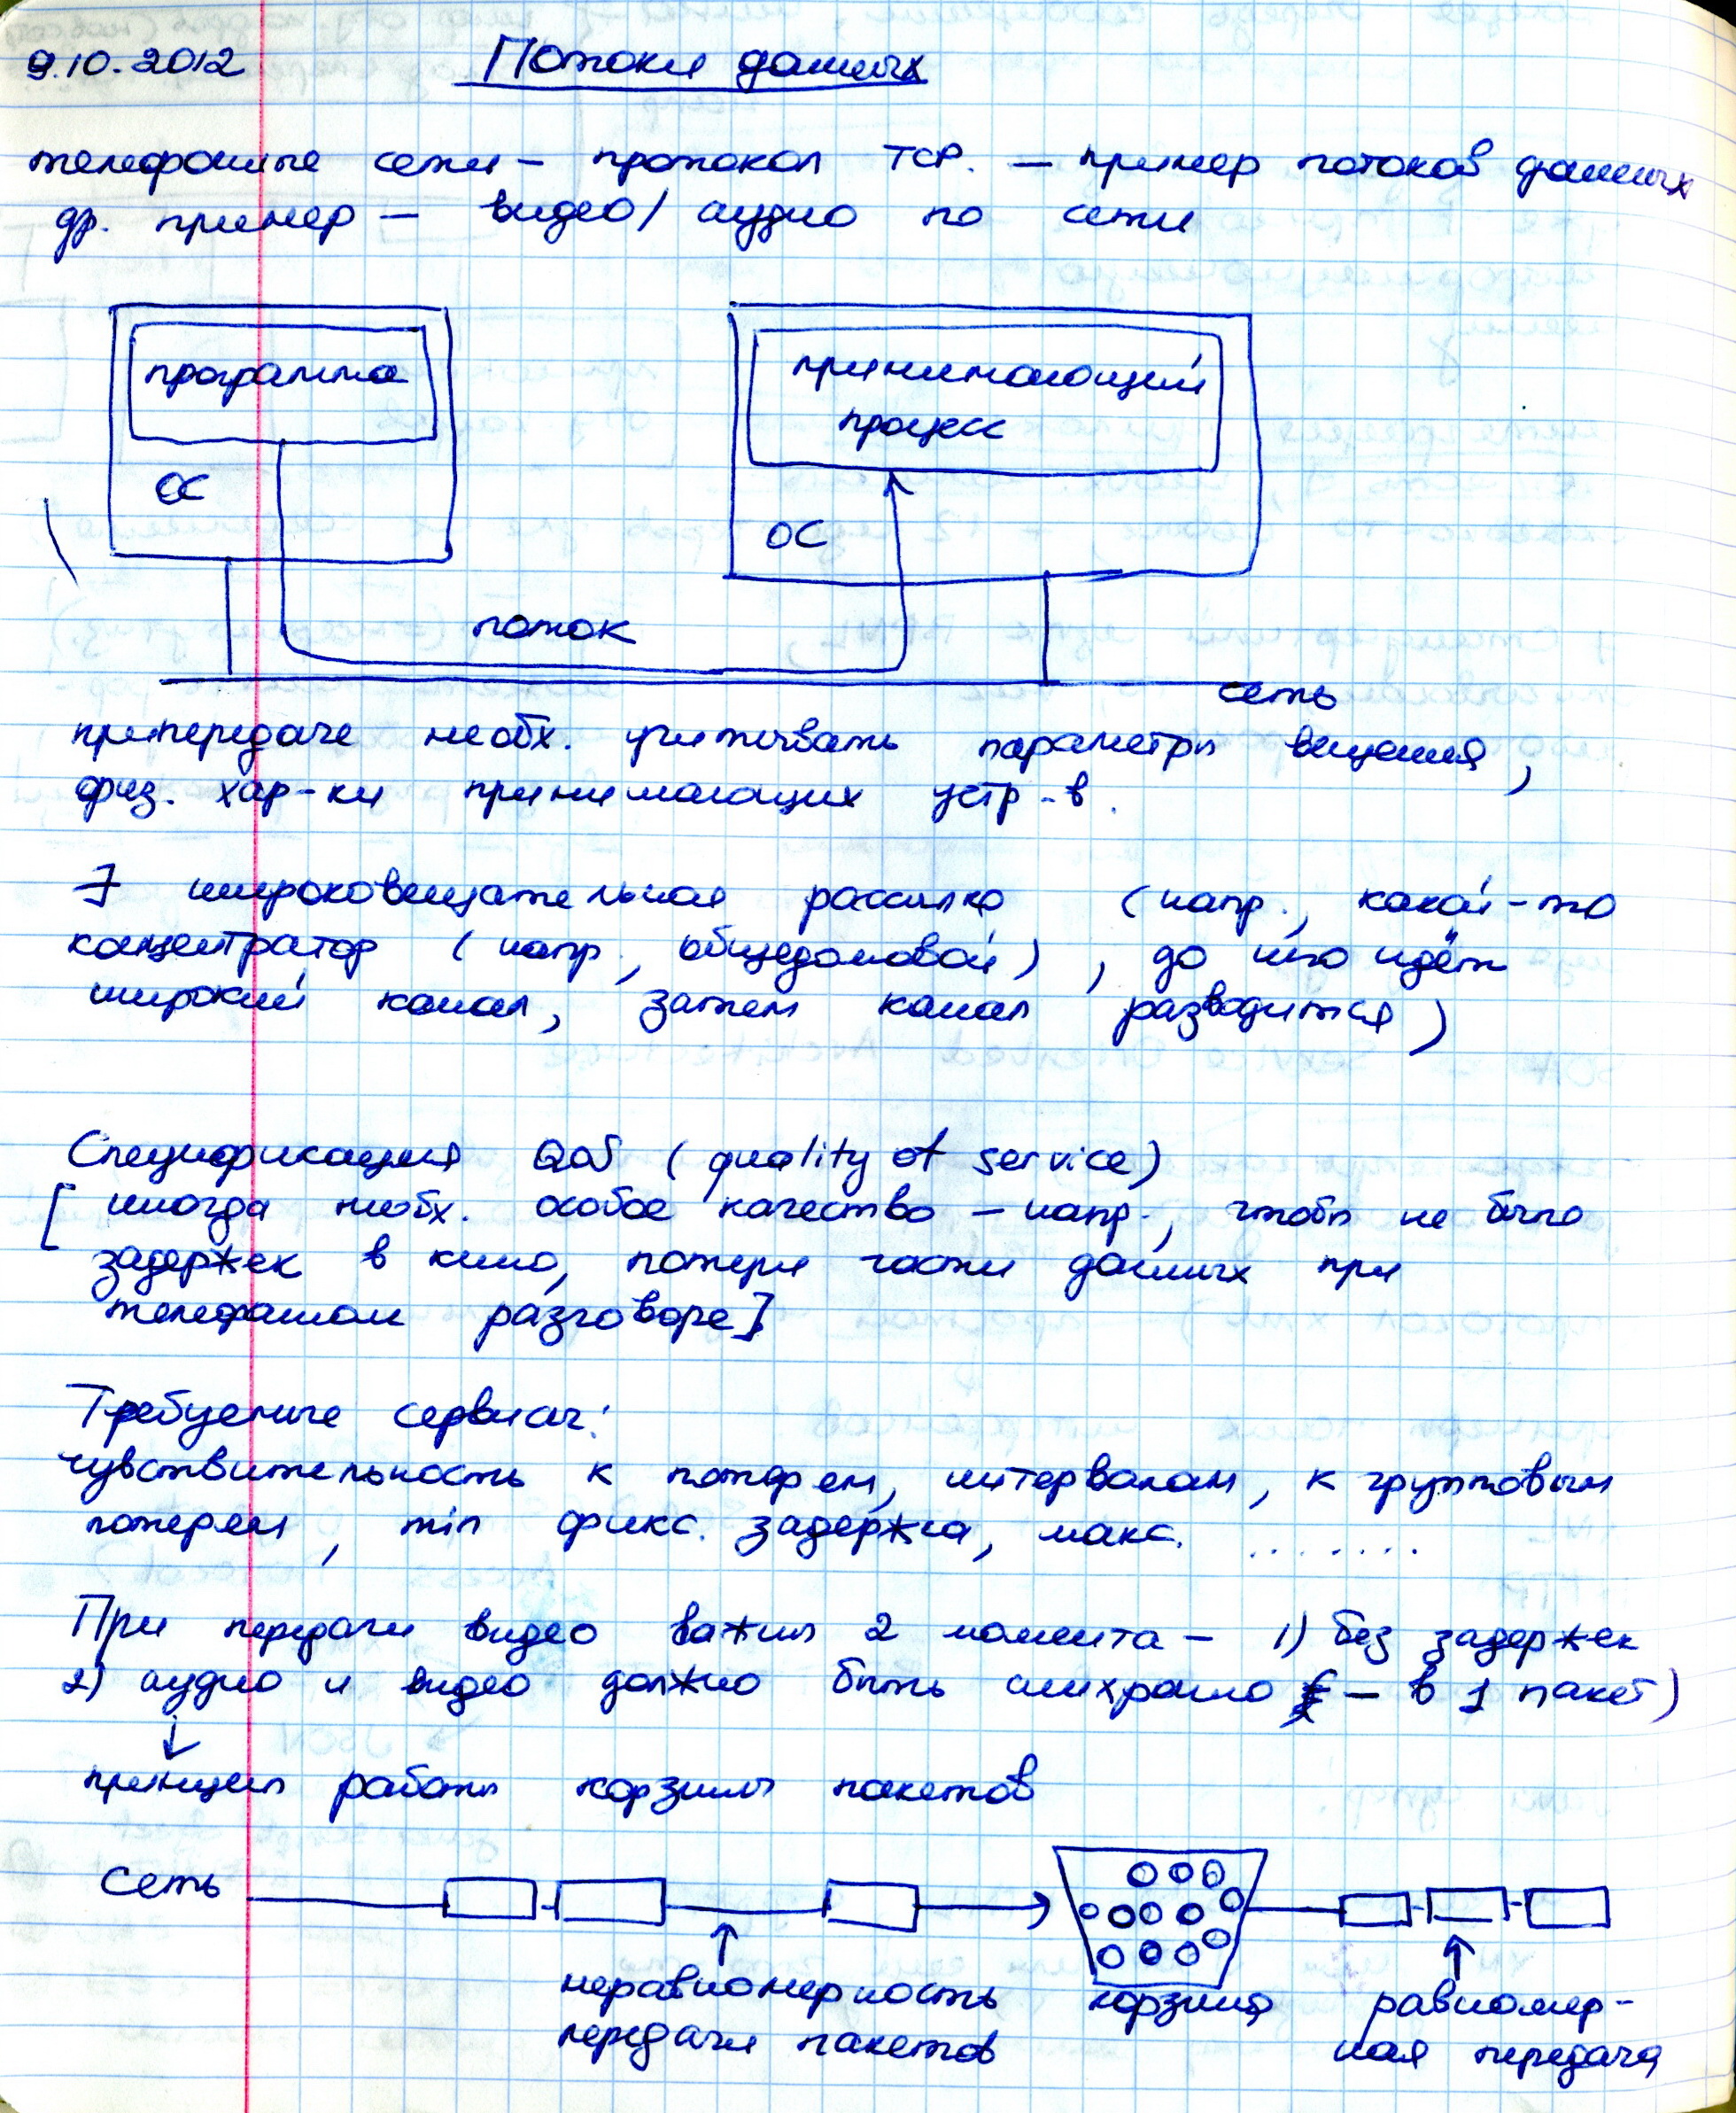 9.10.2012 Потоки данных
телефонные сети – протокол TCP. – пример потоков данных
др. пример – видео/аудио по сети
программа
принимающий
процесс
ОС
ОС
поток
сеть
при передаче необх. учитывать параметры вещания,
физ. хар-ки принимающих устр-в.
∃ широковещательная рассылка (напр., какой-то
концентратор (напр., общедомовой), до него идёт
широкий канал, затем канал разводится)
Спецификация QoS (quality of service)
[ иногда необх. особое качество – напр., чтобы не было
задержек в кино, потери части данных при
телефонном разговоре]
Требуемые сервисы:
чувствительность к потерям, интервалам, к групповым
потерям, min фикс. задержка, макс. .......
При передачи видео важны 2 момента – 1) без задержек
2) аудио и видео должно быть синхронно – в 1 пакет)
↓
принцип работы корзины пакетов
Сеть
неравномерность
передачи пакетов
корзина
равномер-
ная передача